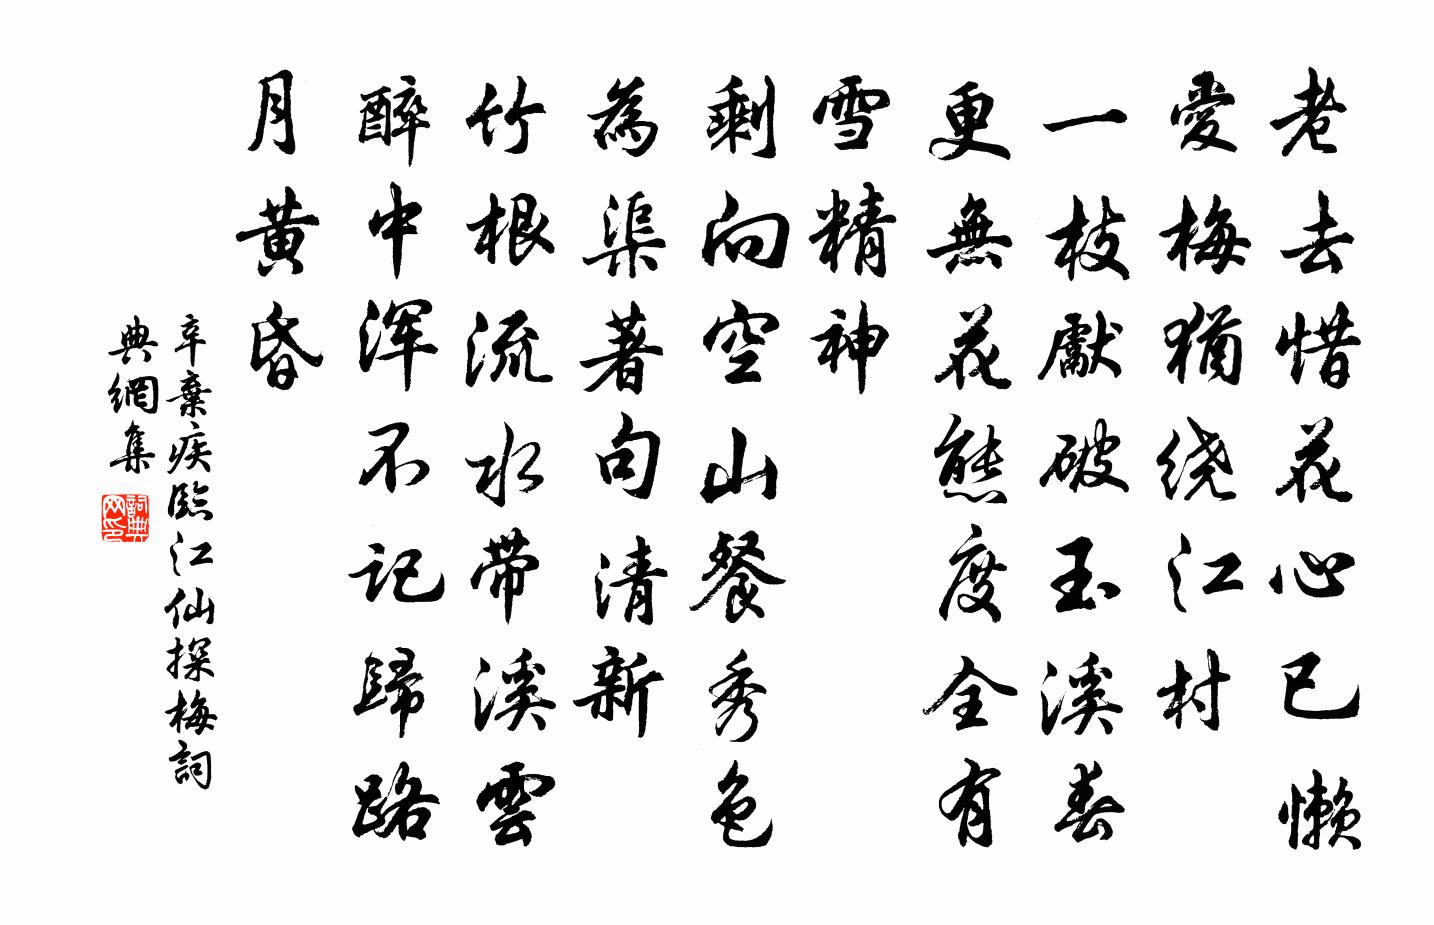 老去惜花心已懒
愛梅猶绕江村
一枝獻破玉溪春
更無花態度
全有雪精神
剩向空山餐秀色
為渠著句清新
竹根流水帶溪雲
醉中浑不記
歸路月黄昏
辛棄疾臨江仙探梅詞
典網集
詞典网印